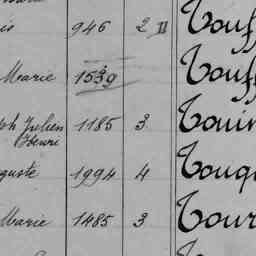 is 946 2 II Touff
Marie 1539 Touff
ph Julien 1185 3 Touin
Henri
guste 1994 4 Touq
Marie 1485 3 Tour